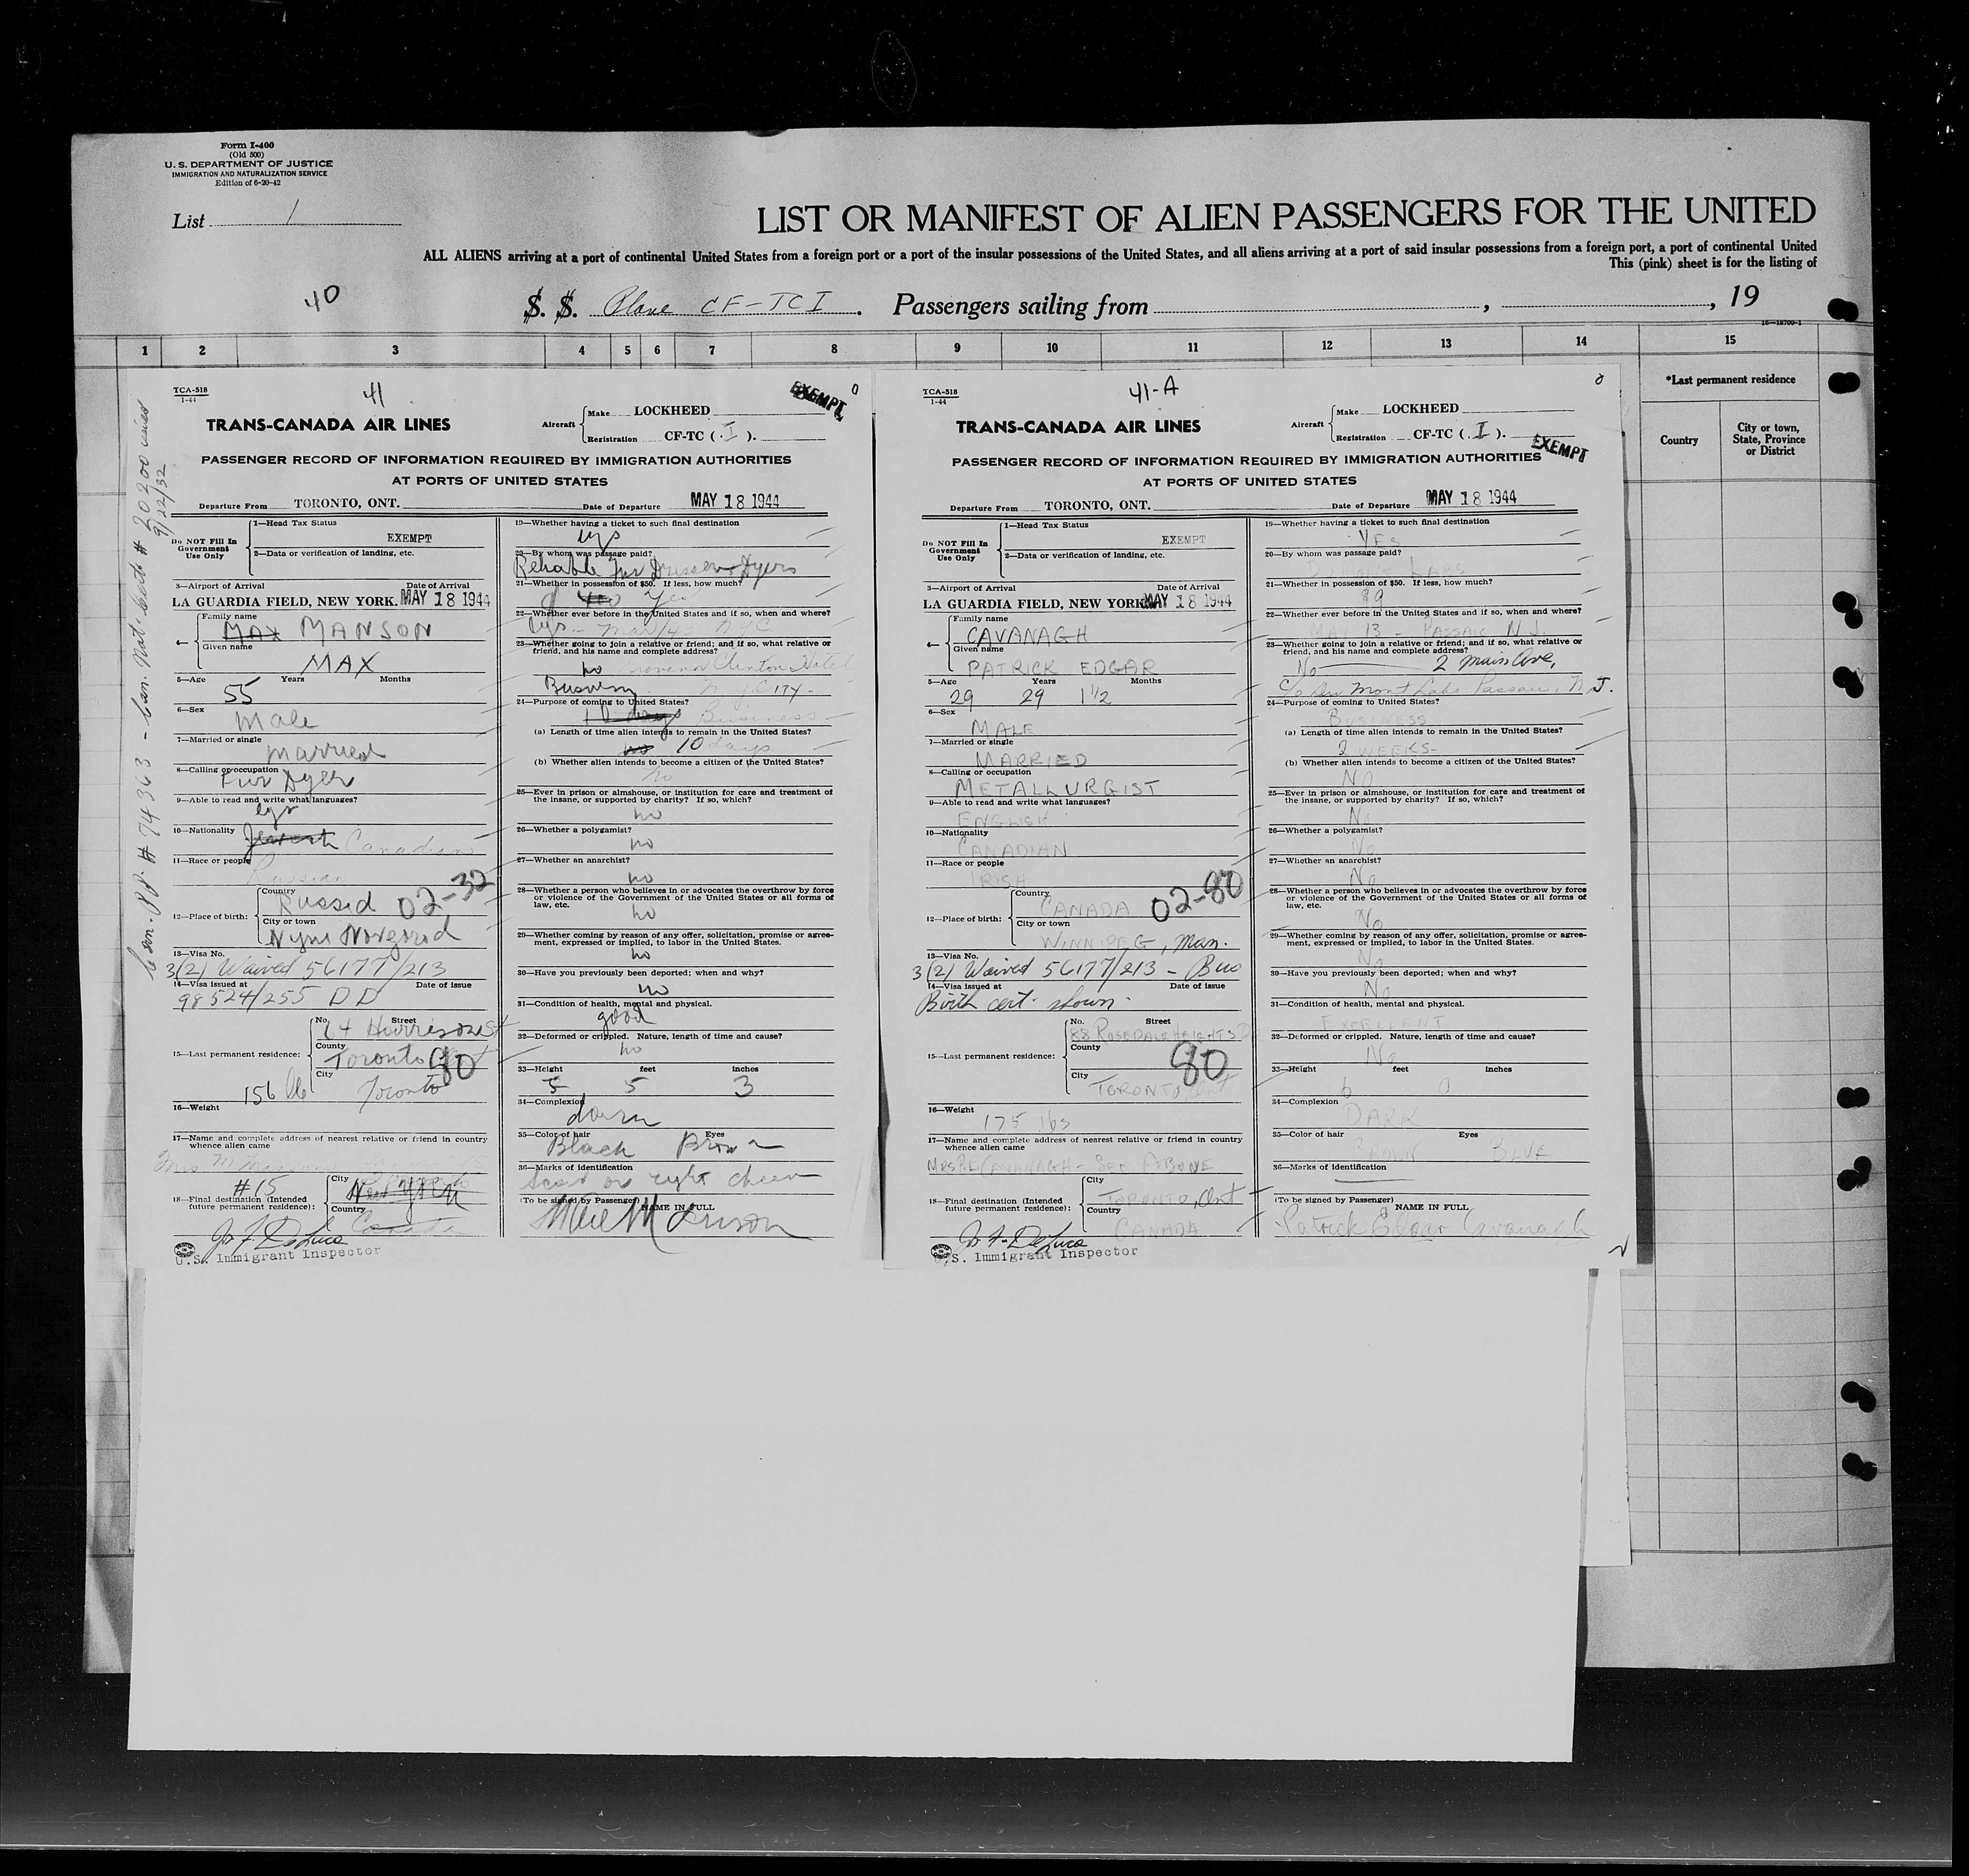 Form I-400
(Old 500)
U. S. DEPARTMENT OF JUSTICE
IMMIGRATION AND NATURALIZATION SERVICE
Edition of 6-20-42
List 1
LIST OR MANIFEST OF ALIEN PASSENGERS FOR THE UNITED
ALL ALIENS arriving at a port of continental United States from a foreign port or a port of the insular possessions of the United States, and all aliens arriving at a port of said insular possessions from a foreign port, a port of continental United
This (pink) sheet is for the listing of
40
S. S. Plane CF-TCI. Passengers sailing from , , 19
16—18700-1
1 2 3 4 5 6 7 8 9 10 11 12 13 14 15
*Last permanent residence
Country
City or town, State, Province or District
Can. PP. # 74363 - Can. Nat. cert # 20200 series
9/22/32
TCA-518
1-44
41
EXEMPT
TRANS-CANADA AIR LINES
Aircraft
Make LOCKHEED
Registration CF-TC ( I ).
PASSENGER RECORD OF INFORMATION REQUIRED BY IMMIGRATION AUTHORITIES
AT PORTS OF UNITED STATES
Departure From TORONTO, ONT. Date of Departure MAY 18 1944
Do NOT Fill In Government Use Only
1—Head Tax Status
EXEMPT
2—Data or verification of landing, etc.
3—Airport of Arrival Date of Arrival
LA GUARDIA FIELD, NEW YORK. MAY 18 1944
4—
Family name
MAX MANSON
Given name
MAX
5—Age Years Months
55
6—Sex
Male
7—Married or single
Married
8—Calling or occupation
Fur Dyer
9—Able to read and write what languages?
10—Nationality
Canadian
11—Race or people
Russian
12—Place of birth:
Country
Russia 02-32
City or town
13—Visa No.
3(2) Waived 56177/213
14—Visa issued at Date of issue
98524/255 DD
15—Last permanent residence:
No. Street
64 Harrison St
County
Toronto 80
City
Toronto
156 lb
16—Weight
17—Name and complete address of nearest relative or friend in country whence alien came
Mrs M Manson
#15
18—Final destination (Intended future permanent residence):
City
New York
Country
Canada
U.S. Immigrant Inspector
19—Whether having a ticket to such final destination
yes
20—By whom was passage paid?
Reliable Fur Dressers Dyers
21—Whether in possession of $50. If less, how much?
Yes
22—Whether ever before in the United States and if so, when and where?
yes - Mar/4 - NYC
23—Whether going to join a relative or friend; and if so, what relative or friend, and his name and complete address?
no Governor Clinton Hotel
Business N.Y. CITY.
24—Purpose of coming to United States?
10 days Business
(a) Length of time alien intends to remain in the United States?
no 10 days
(b) Whether alien intends to become a citizen of the United States?
no
25—Ever in prison or almshouse, or institution for care and treatment of the insane, or supported by charity? If so, which?
no
26—Whether a polygamist?
no
27—Whether an anarchist?
no
28—Whether a person who believes in or advocates the overthrow by force or violence of the Government of the United States or all forms of law, etc.
no
29—Whether coming by reason of any offer, solicitation, promise or agreement, expressed or implied, to labor in the United States.
no
30—Have you previously been deported; when and why?
no
31—Condition of health, mental and physical.
good
32—Deformed or crippled. Nature, length of time and cause?
no
33—Height feet inches
5 5 3
34—Complexion
35—Color of hair Eyes
Black Brown
36—Marks of identification
(To be signed by Passenger) NAME IN FULL
TCA-518
1-44
41-A
TRANS-CANADA AIR LINES
Aircraft
Make LOCKHEED
Registration CF-TC ( I ).
EXEMPT
PASSENGER RECORD OF INFORMATION REQUIRED BY IMMIGRATION AUTHORITIES
AT PORTS OF UNITED STATES
Departure From TORONTO, ONT. Date of Departure MAY 18 1944
Do NOT Fill In Government Use Only
1—Head Tax Status
EXEMPT
2—Data or verification of landing, etc.
3—Airport of Arrival Date of Arrival
LA GUARDIA FIELD, NEW YORK. MAY 18 1944
4—
Family name
CAVANAGH
Given name
PATRICK EDGAR
5—Age Years Months
29 29 1 1/2
6—Sex
MALE
7—Married or single
MARRIED
8—Calling or occupation
METALLURGIST
9—Able to read and write what languages?
ENGLISH
10—Nationality
CANADIAN
11—Race or people
IRISH
12—Place of birth:
Country
CANADA 02-80
City or town
WINNIPEG, Man.
13—Visa No.
3(2) Waived 56177/213 - Bus
14—Visa issued at Date of issue
Birth cert. shown.
15—Last permanent residence:
No. Street
88 ROSEDALE HEIGHTS D
County
80
City
TORONTO Ont
16—Weight
175 lbs
17—Name and complete address of nearest relative or friend in country whence alien came
MRS P.E. CAVANAGH - SEE ABOVE
18—Final destination (Intended future permanent residence):
City
TORONTO, Ont
Country
CANADA
U.S. Immigrant Inspector
19—Whether having a ticket to such final destination
YES
20—By whom was passage paid?
DU MONT LABS
21—Whether in possession of $50. If less, how much?
$9
22—Whether ever before in the United States and if so, when and where?
13 - PASSAIC N.J.
23—Whether going to join a relative or friend; and if so, what relative or friend, and his name and complete address?
No 2 Main Ave,
c/o Du Mont Labs Passaic, N.J.
24—Purpose of coming to United States?
BUSINESS
(a) Length of time alien intends to remain in the United States?
2 WEEKS-
(b) Whether alien intends to become a citizen of the United States?
NO
25—Ever in prison or almshouse, or institution for care and treatment of the insane, or supported by charity? If so, which?
No
26—Whether a polygamist?
No
27—Whether an anarchist?
No
28—Whether a person who believes in or advocates the overthrow by force or violence of the Government of the United States or all forms of law, etc.
No
29—Whether coming by reason of any offer, solicitation, promise or agreement, expressed or implied, to labor in the United States.
No
30—Have you previously been deported; when and why?
No
31—Condition of health, mental and physical.
EXCELLENT
32—Deformed or crippled. Nature, length of time and cause?
No
33—Height feet inches
6 0
34—Complexion
DARK
35—Color of hair Eyes
BROWN BLUE
36—Marks of identification
(To be signed by Passenger) NAME IN FULL
Patrick Edgar Cavanagh